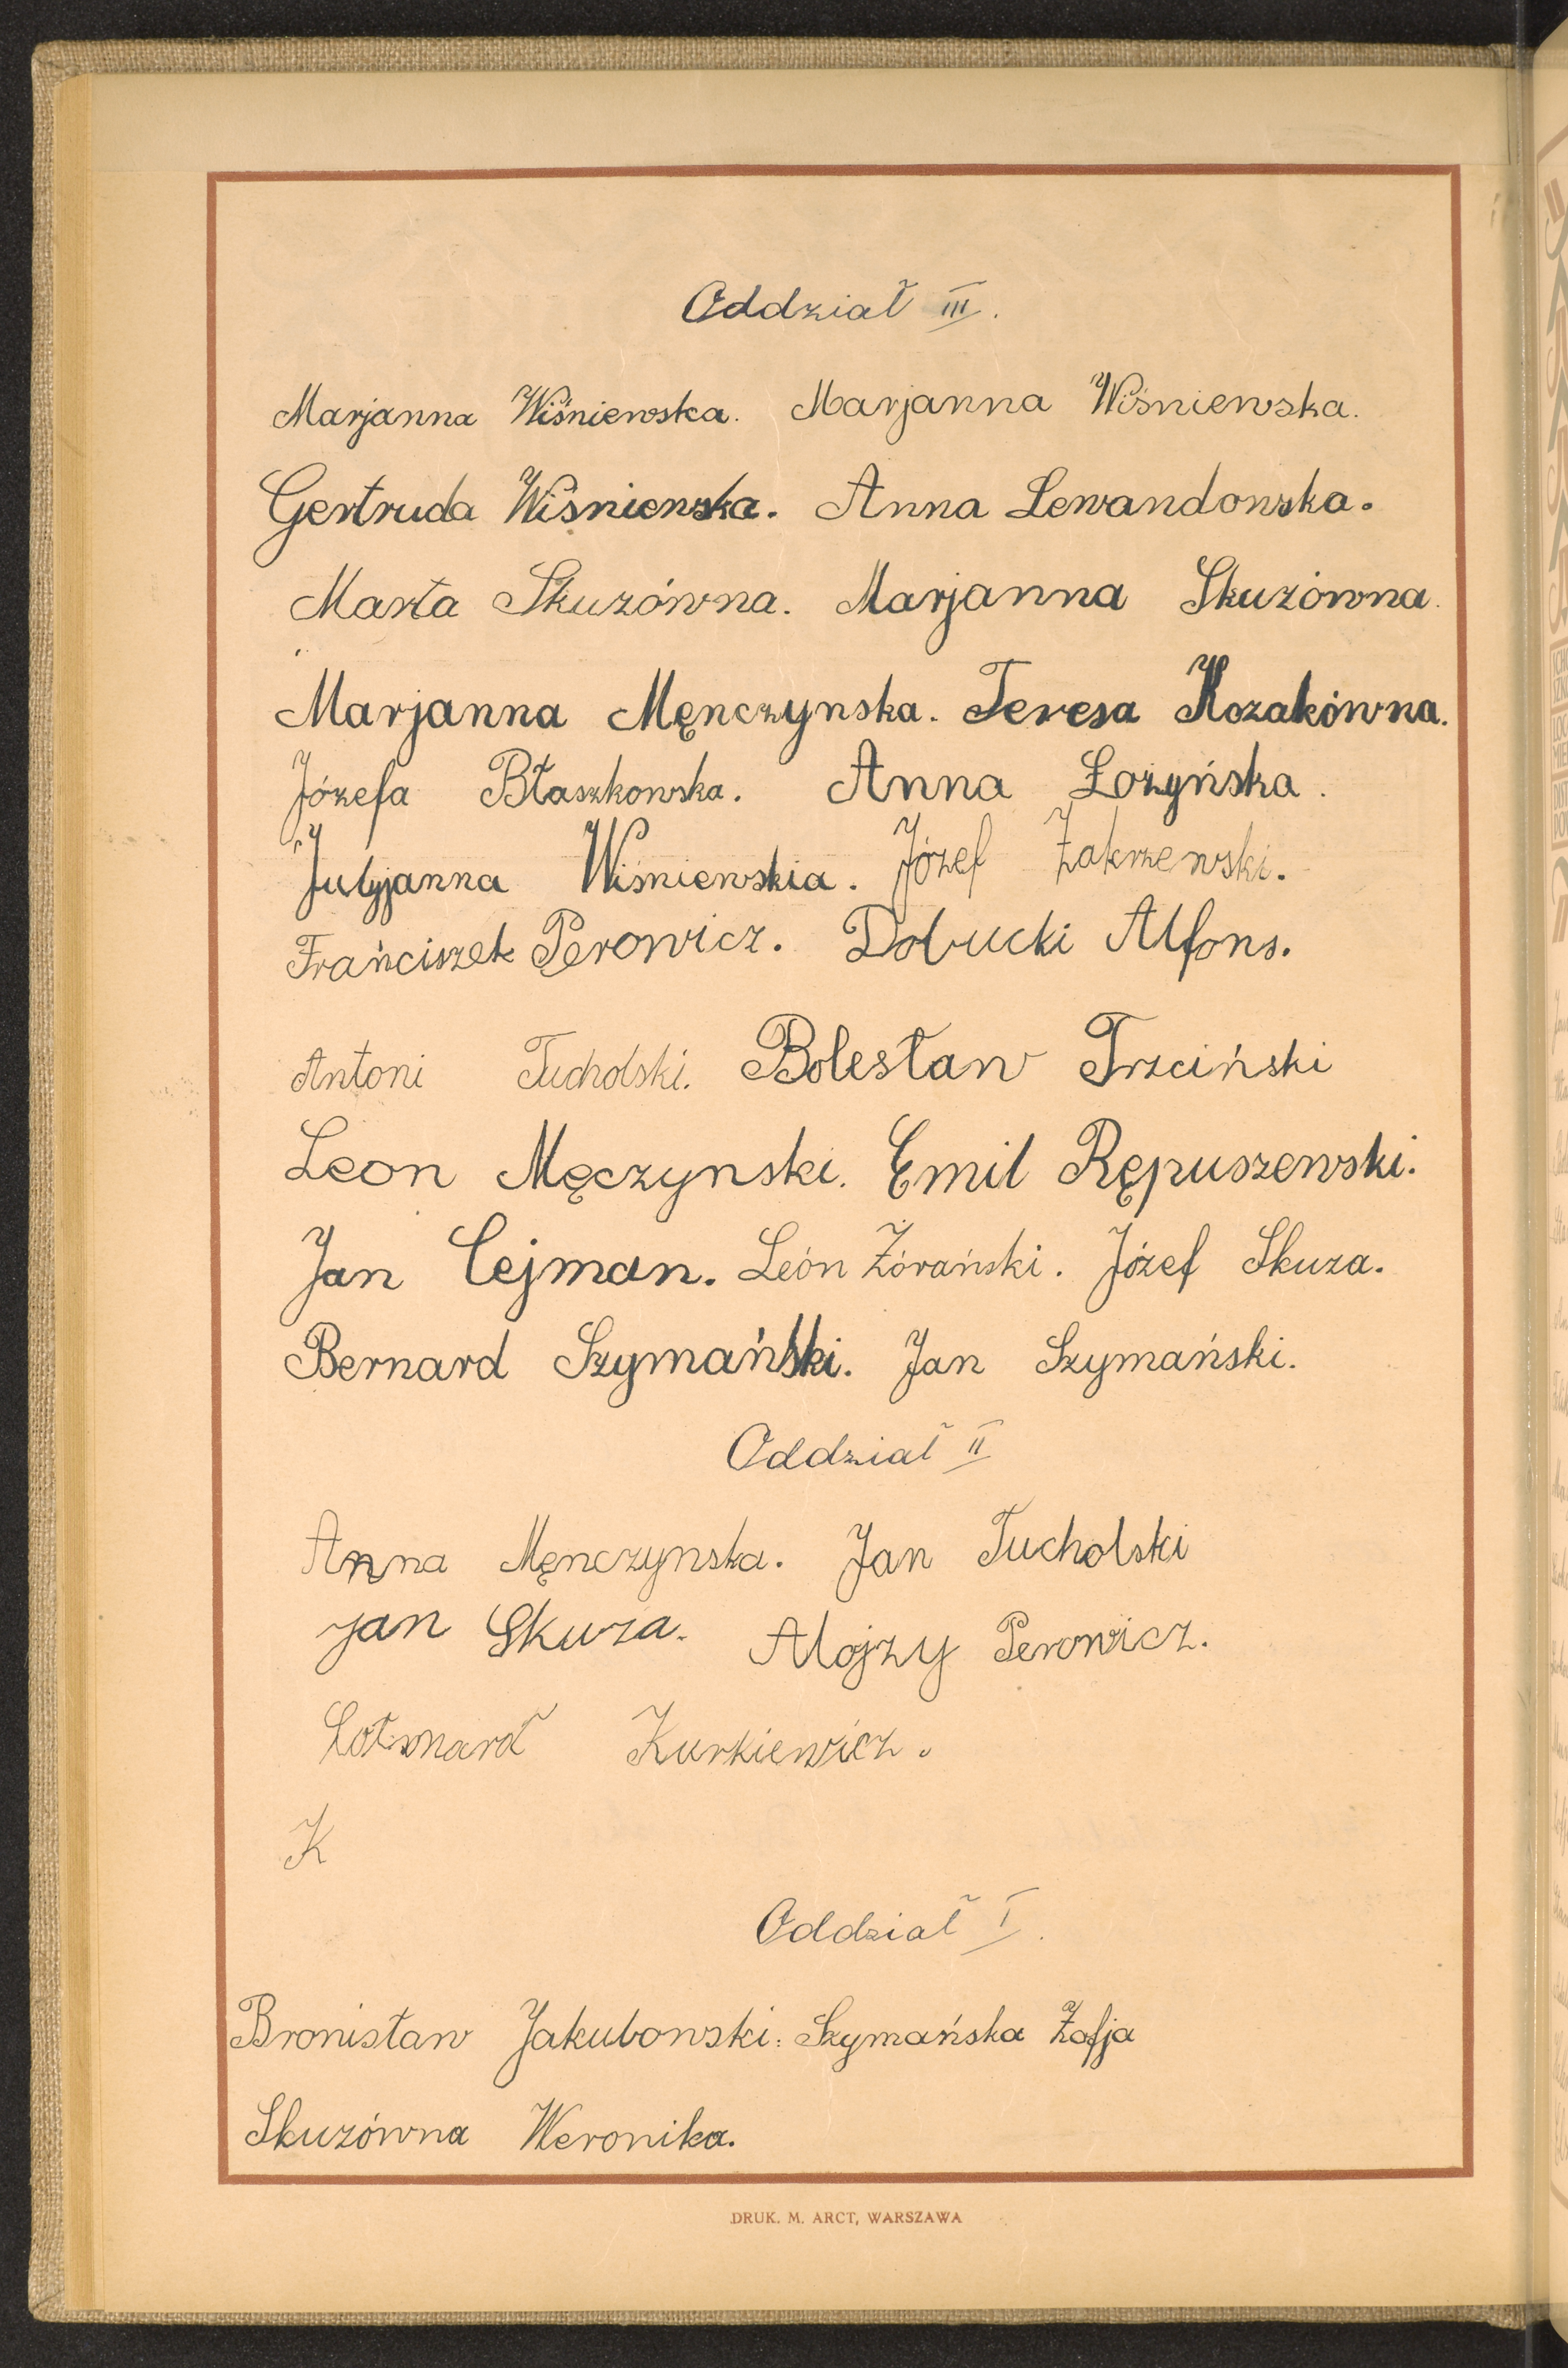 Oddział III.
Marjanna Wiśniewska. Marjanna Wiśniewska.
Gertruda Wiśniewska. Anna Lewandowska.
Marta Skuzówna. Marjanna Skuzówna.
Marjanna Męnczynska. Teresa Kozakówna.
Józefa Błaszkowska. Anna Łożyńska.
Julyjanna Wiśniewskia. Józef Zakrzewski.
Frańciszek Perowicz. Dobucki Alfons.
Antoni Tucholski. Bolesław Trzciński
Leon Męczynski. Emil Rępuszewski.
Jan Cejman. León Żórański. Józef Skuza.
Bernard Szymański. Jan Szymański.
Oddział II
Anna Męnczynska. Jan Tucholski
Jan Skuza. Alojzy Perowicz.
Kurkiewicz.
K
Oddział I.
Bronisław Jakubowski. Szymańska Zofja
Skuzówna Weronika.
DRUK. M. ARCT, WARSZAWA